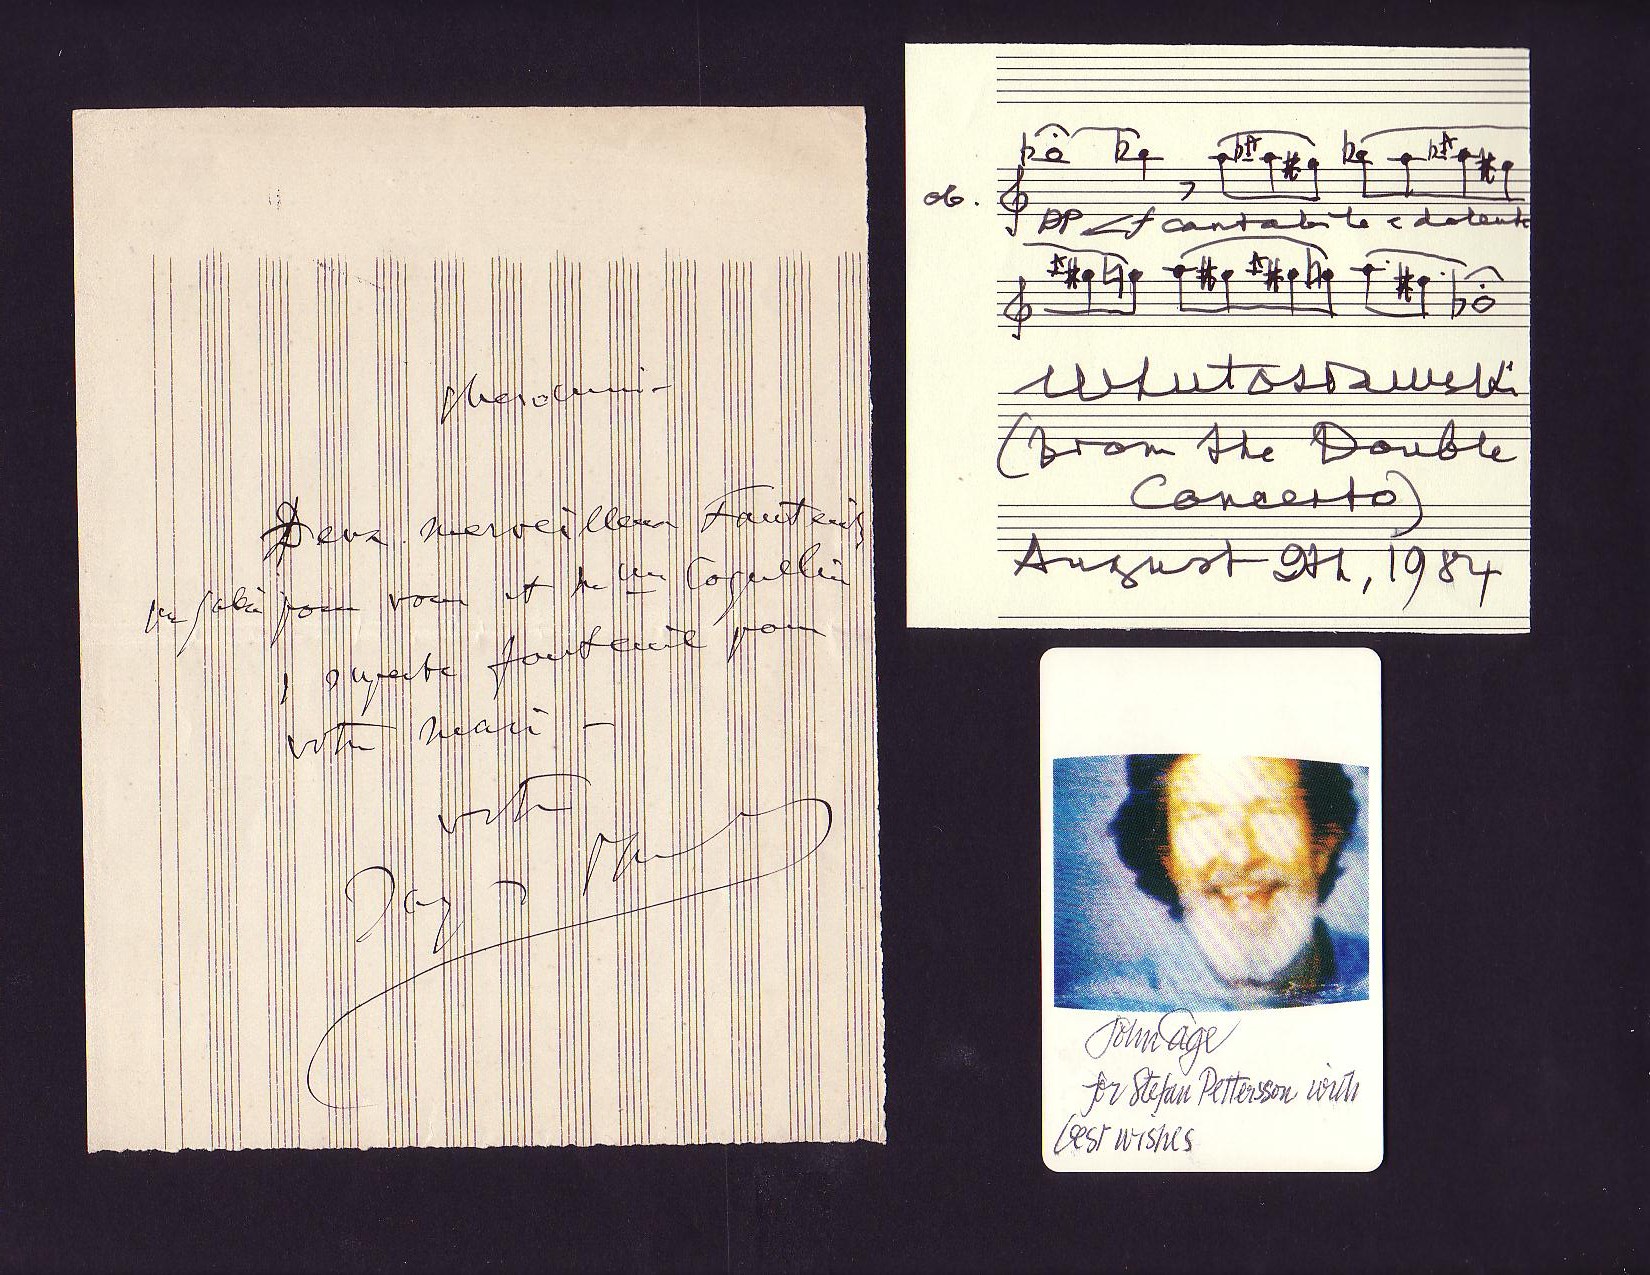 Deux merveilleux Fauteuils
pour vous et
fauteuil pour
votre mari –
votre
ob.
PP < f cantabile e dolente
WLutosławski
(from the Double
Concerto)
August 9th, 1984
John Cage
for Stefan Pettersson with
best wishes